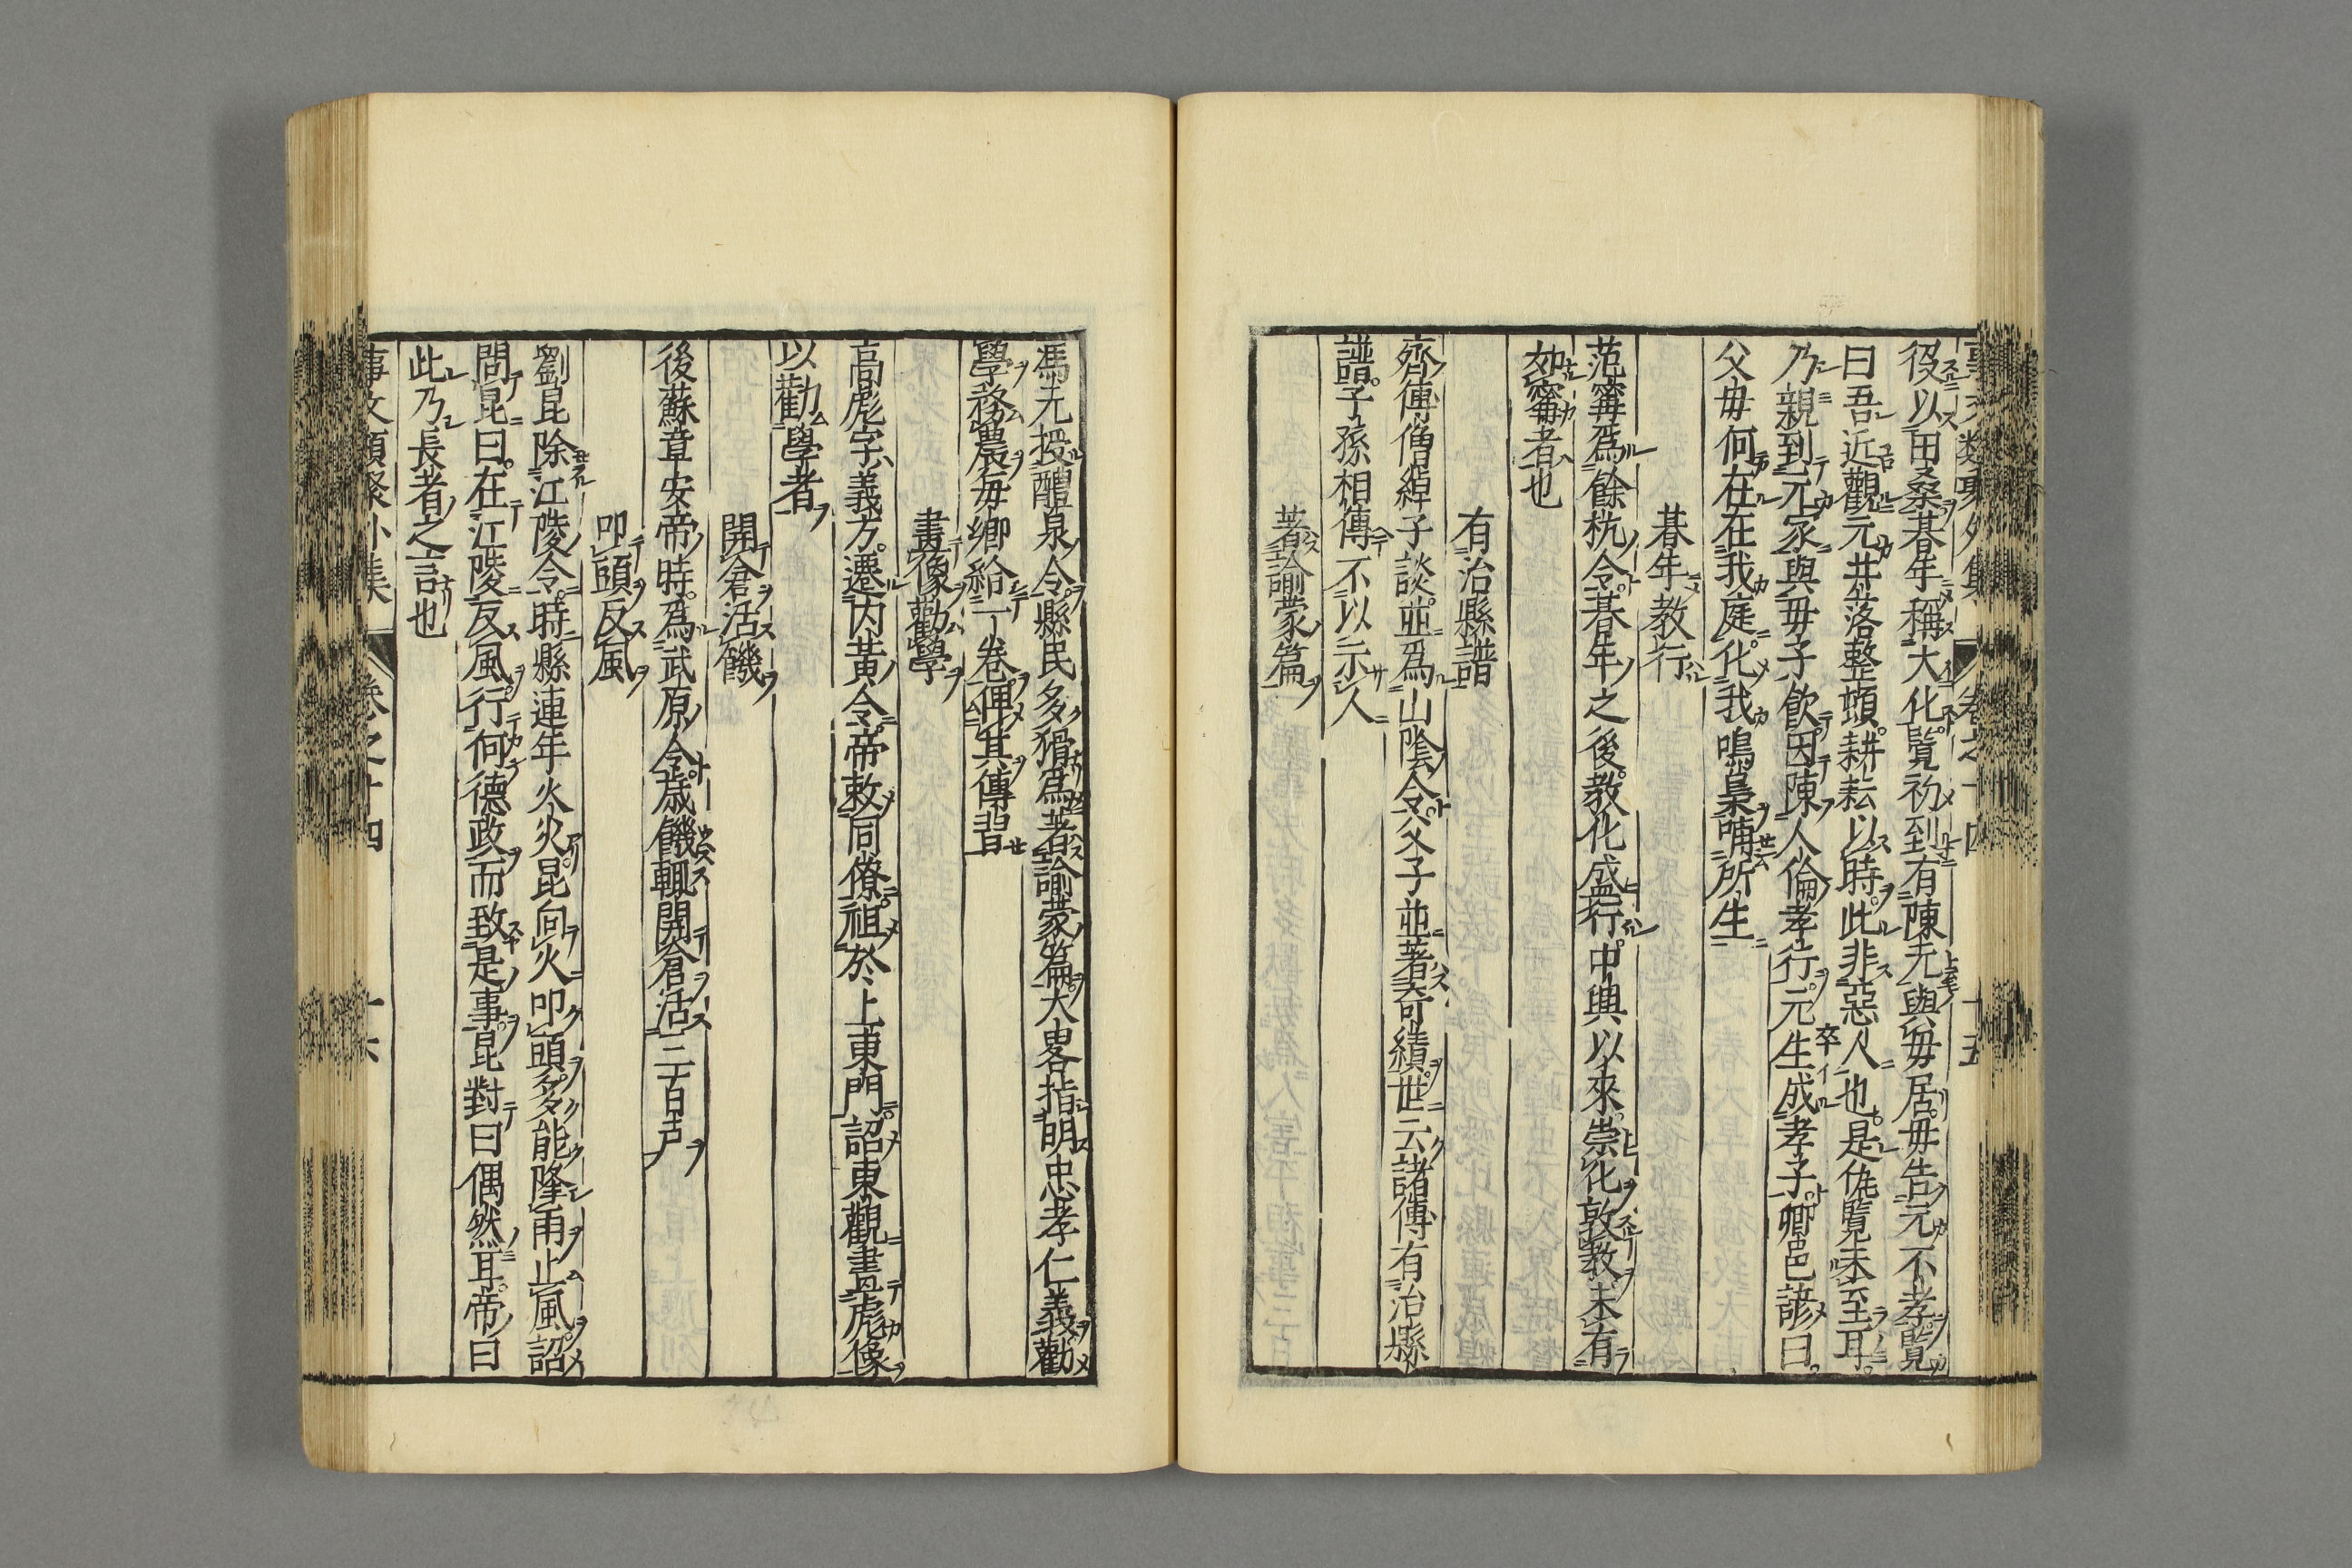 事文類聚外集 卷之十四 十五
役以田桑朞年稱大化覽初到有陳元與毋居毋告元不孝覽
曰吾近觀元井落整頓耕耘以時此非惡人也是侊覽未至耳
乃親到元家與毋子飲因陳人倫孝行元生成孝子鄉邑諺曰
父毋何在在我庭化我鳴梟哺所生
朞年教行
范寗爲餘杭令朞年之後教化成行中興以來崇化敦教未有
如寗者也
有治縣譜
齊傅僧綽子談並爲山陰令父子並著奇績世云諸傅有治縣
譜子孫相傳不以示人
著諭蒙篇
馮元授醴泉令縣民多猾爲著諭蒙篇大畧指明忠孝仁義勸
學務農每鄉給一卷俾其傳習
畫像勸學
高彪字義方遷内黃令帝敕同僚祖於上東門詔東觀畫彪像
以勸學者
開倉活饑
後蘇章安帝時爲武原令歲饑輒開倉活三百戸
叩頭反風
劉昆除江陵令時縣連年火災昆向火叩頭多能降雨止風詔
問昆曰在江陵反風行何德政而致是事昆對曰偶然耳帝曰
此乃長者之言也
事文類聚外集 卷之十四 十六